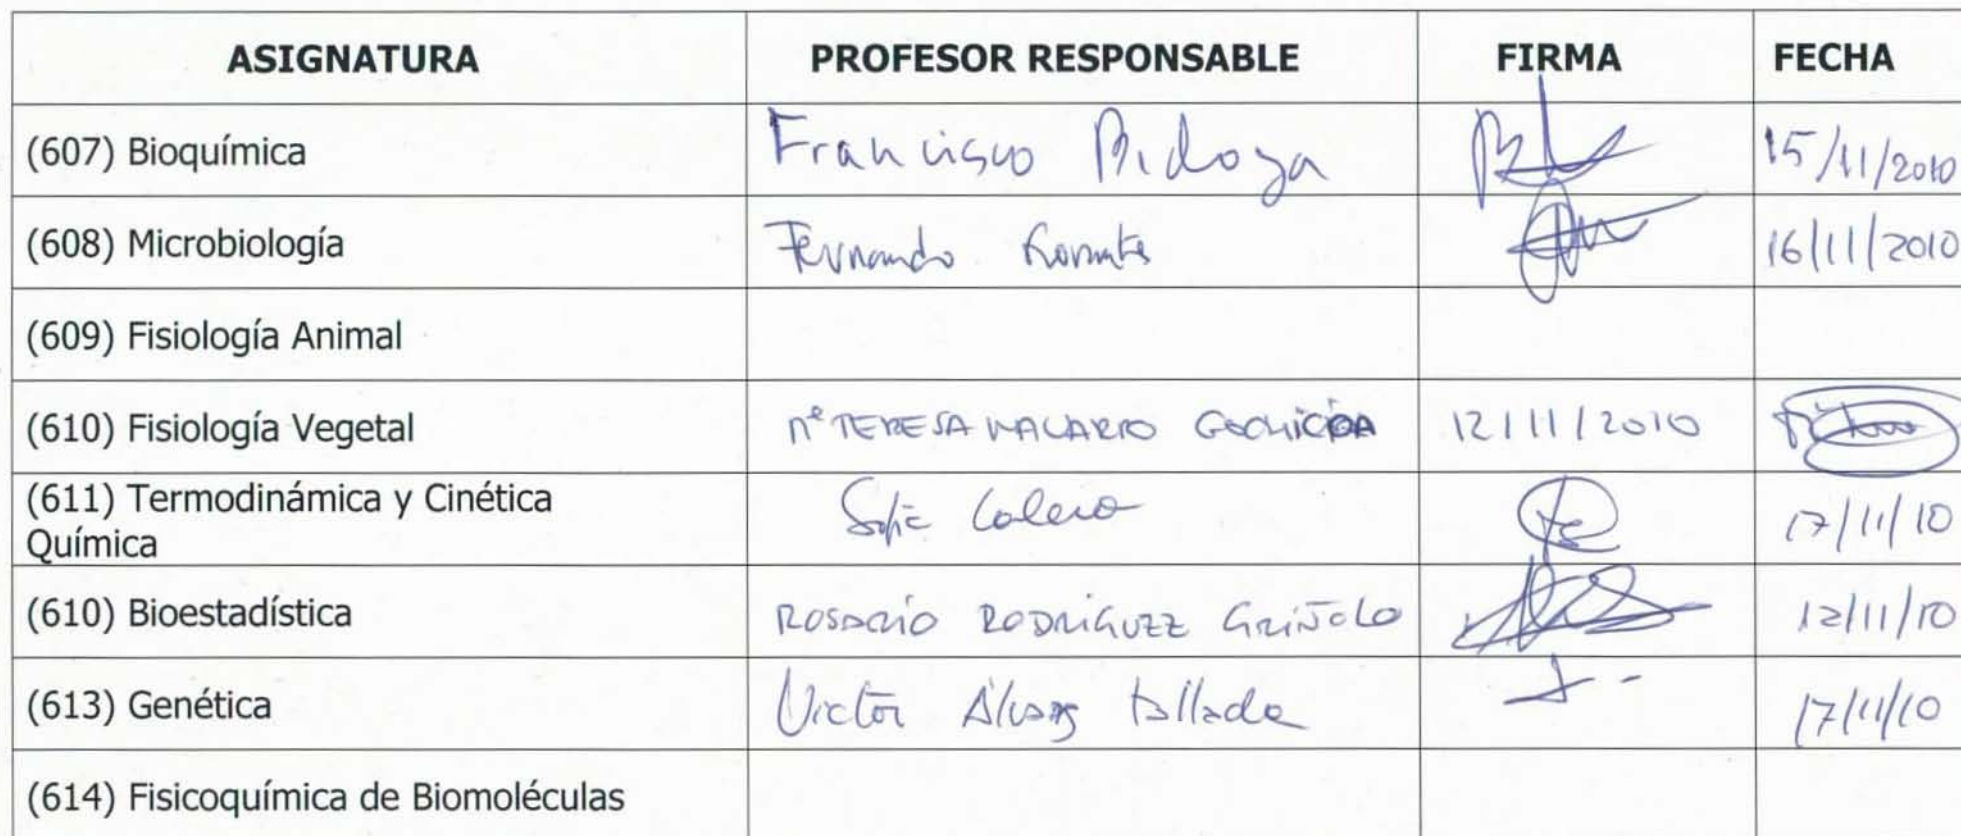 ASIGNATURA PROFESOR RESPONSABLE FIRMA FECHA
(607) Bioquímica Francisco 15/11/2010
(608) Microbiología Fernando 16/11/2010
(609) Fisiología Animal
(610) Fisiología Vegetal Mª TERESA NAVARRO 12/11/2010
(611) Termodinámica y Cinética
Química Sofía Calero 17/11/10
(610) Bioestadística ROSARIO RODRÍGUEZ GRIÑOLO 12/11/10
(613) Genética Víctor Álvarez Tallada 17/11/10
(614) Fisicoquímica de Biomoléculas